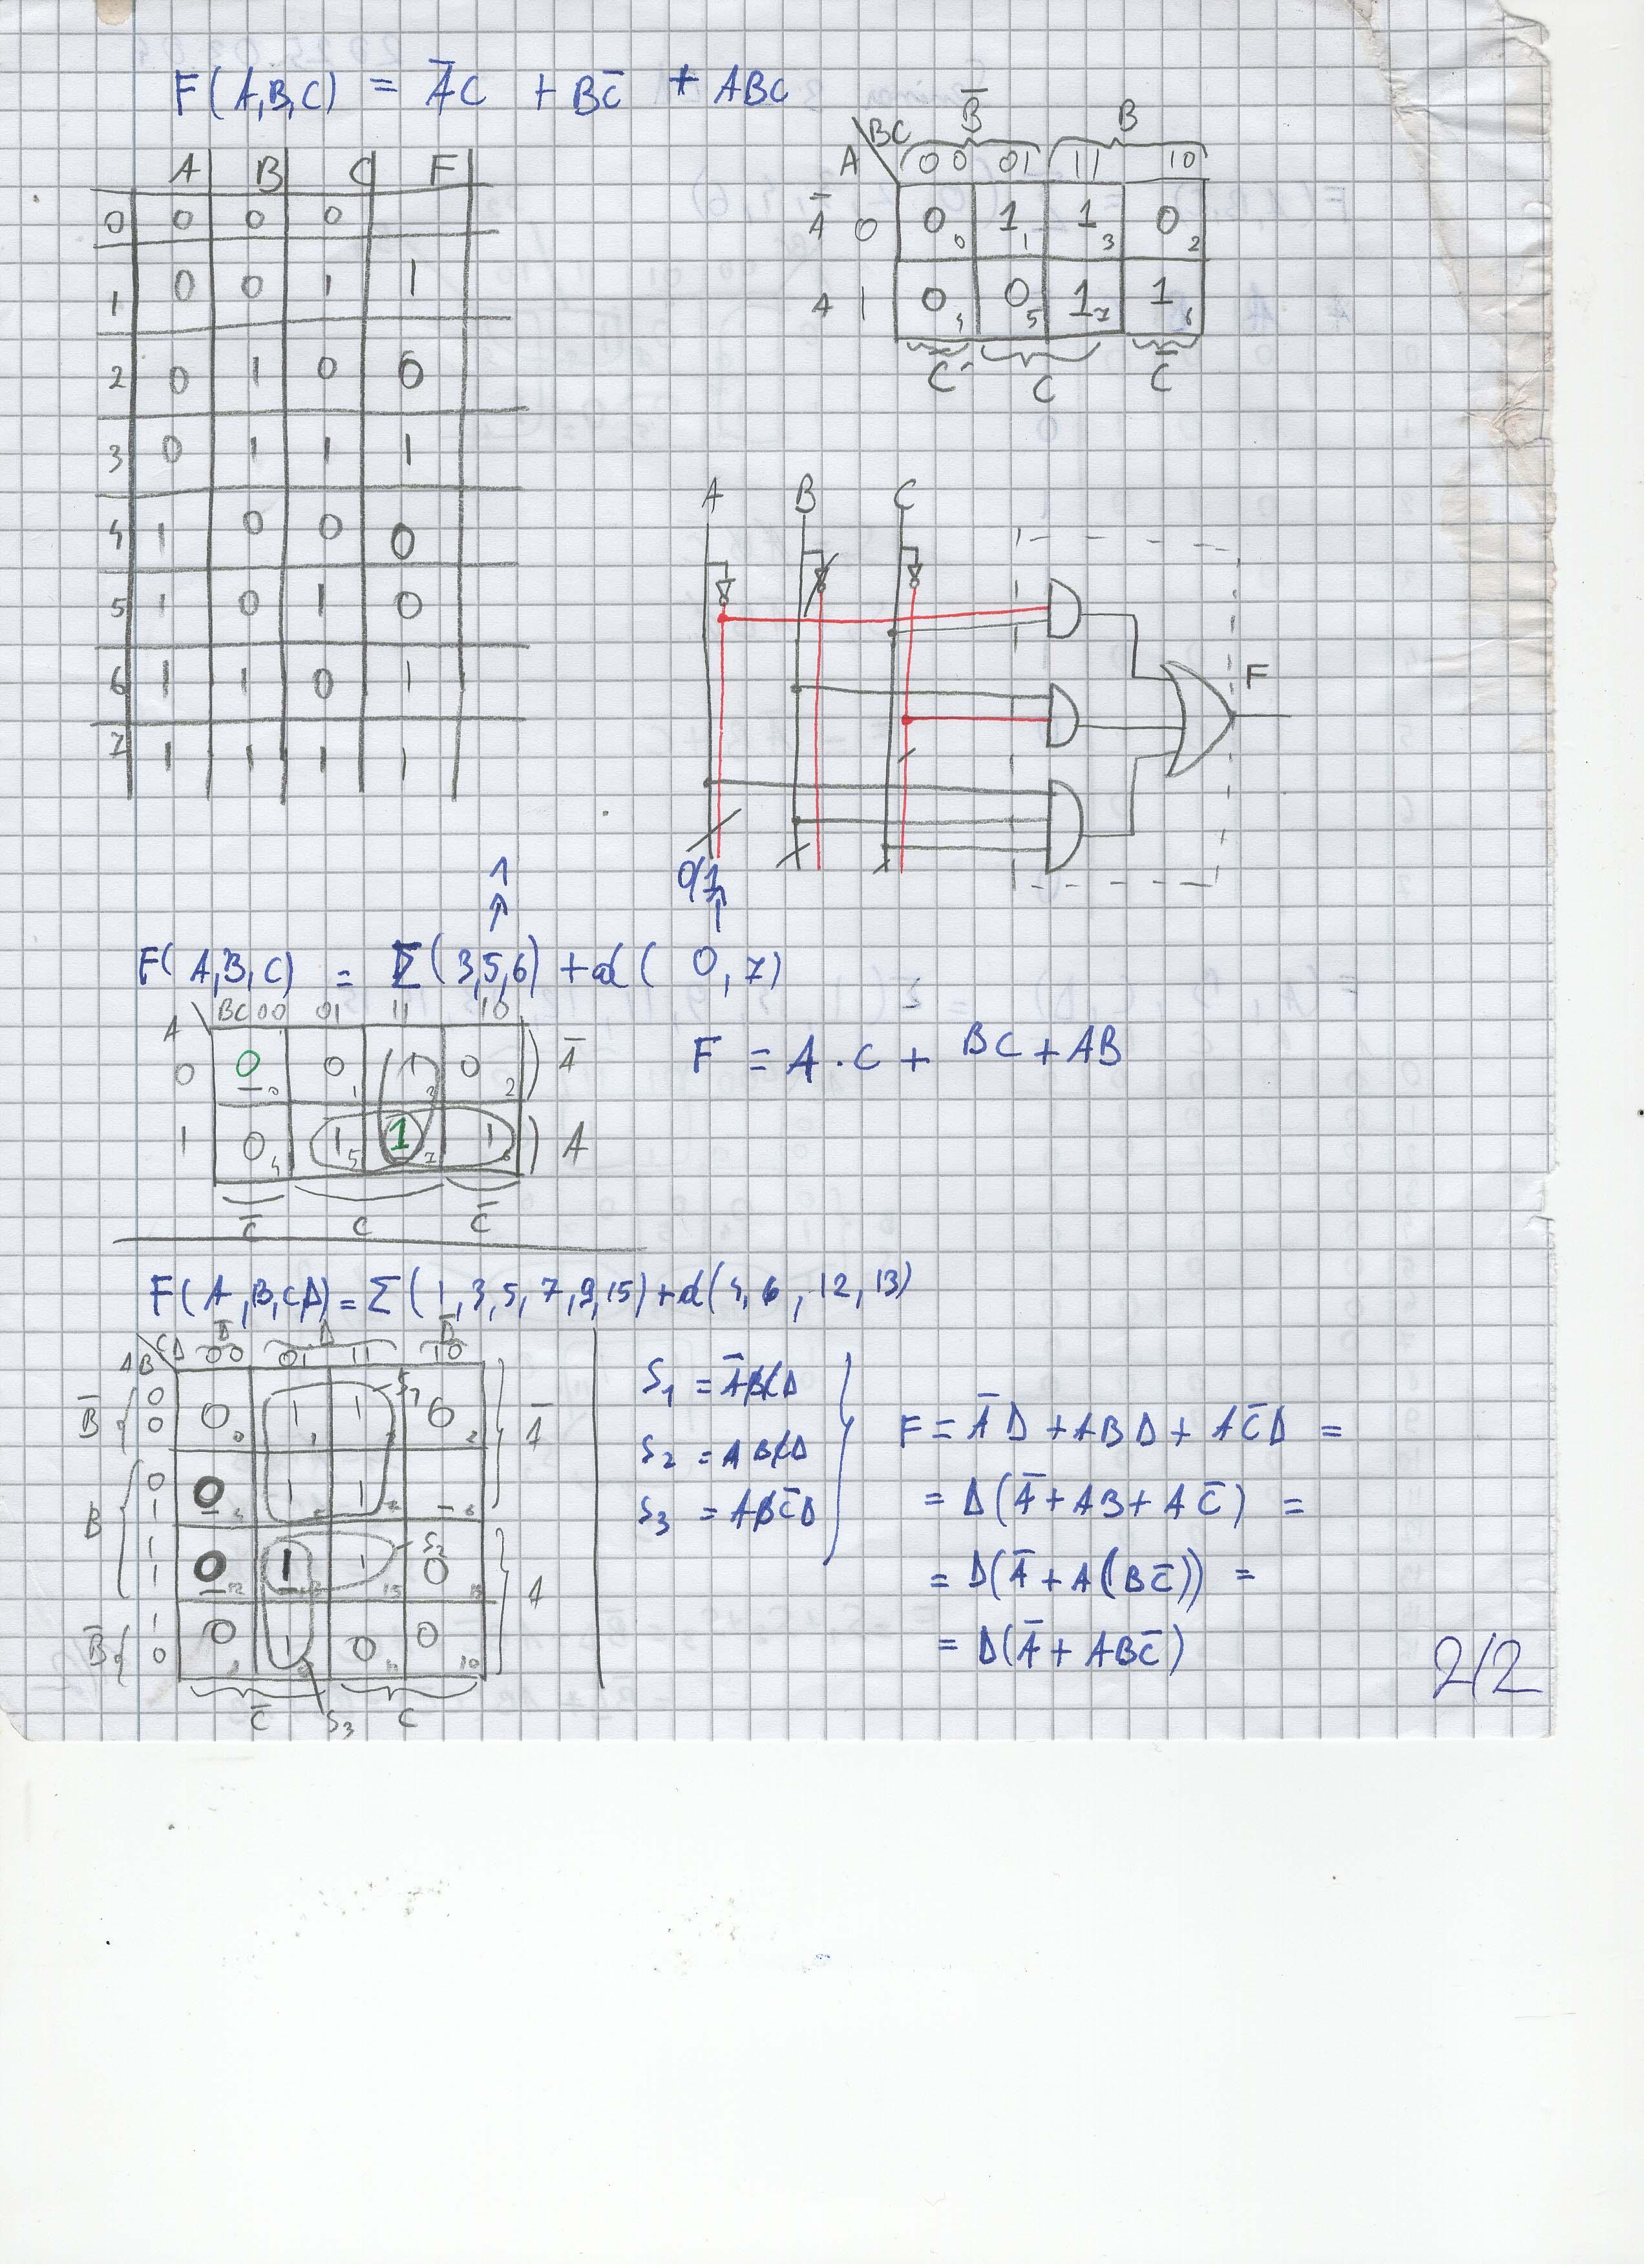 F(A,B,C) = A̅C + BC̅ + ABC
A B C F
0 0 0 0
1 0 0 1 1
2 0 1 0 0
3 0 1 1 1
4 1 0 0 0
5 1 0 1 0
6 1 1 0 1
7 1 1 1 1
B̅ B
A \ BC 00 01 11 10
A̅ 0 0₀ 1₁ 1₃ 0₂
A 1 0₄ 0₅ 1₇ 1₆
C̅ C C̅
A B C
F
1 0/1
↑ ↑
F(A,B,C) = Σ(3,5,6) + d(0,7)
A \ BC 00 01 11 10
0 0₀ 0₁ 1₃ 0₂ A̅
1 0₄ 1₅ 1₇ 1₆ A
C̅ C C̅
F = A·C + BC + AB
F(A,B,C,D) = Σ(1,3,5,7,9,15) + d(4,6,12,13)
D̅ D D̅
AB \ CD 00 01 11 10
B̅ 00 0₀ 1₁ 1₃ 0₂ A̅ S₁
B 01 0₄ 1₅ 1₇ -₆
11 0₁₂ 1₁₃ 1₁₅ 0 A S₂
B̅ 10 0 1₉ 0₁₁ 0₁₀
C̅ S₃ C
S₁ = A̅BCD
S₂ = ABCD
S₃ = ABC̅D
F = A̅D + ABD + AC̅D =
= D(A̅ + AB + AC̅) =
= D(A̅ + A(BC̅)) =
= D(A̅ + ABC̅)
2/2